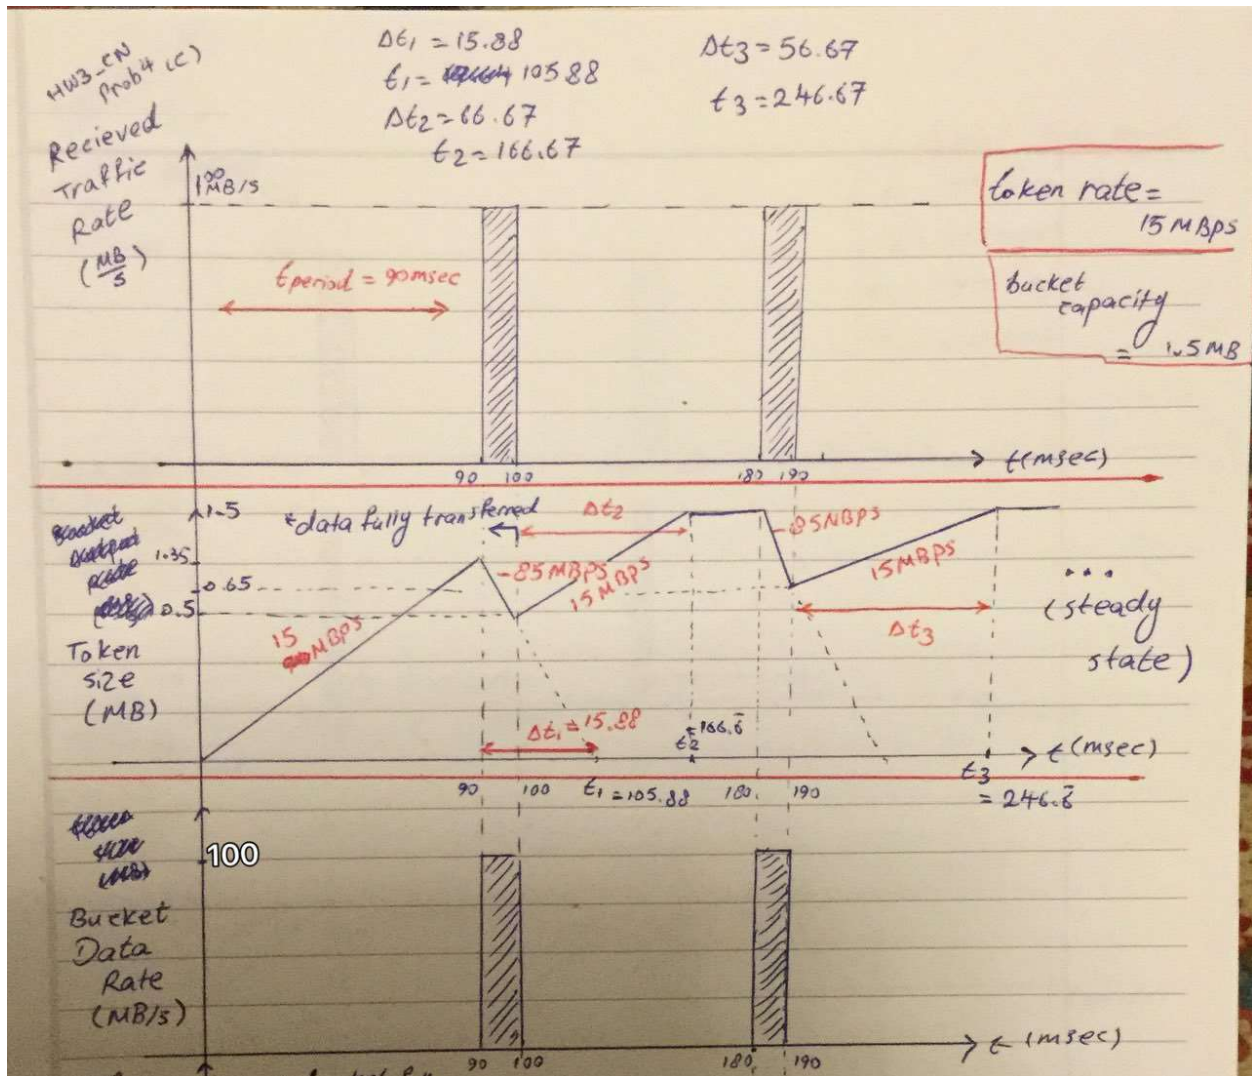 HW3_CN
Prob4 (C)
Δt1 = 15.88
t1 = 105.88
Δt2 = 66.67
t2 = 166.67
Δt3 = 56.67
t3 = 246.67
Recieved
Traffic
Rate
(MB/S)
100
MB/S
tperiod = 90msec
token rate =
15 MBPS
bucket
capacity
= 1.5 MB
90 100
180 190
t(msec)
1.5
1.35
0.65
0.5
Token
size
(MB)
*data fully transferred
Δt2
-85MBPS
15 MBPS
15 MBPS
-85MBPS
15MBPS
Δt3
...
(steady
state)
Δt1 = 15.88
t2 = 166.6̄
t(msec)
90 100
t1 = 105.88
180 190
t3
= 246.6̄
100
Bucket
Data
Rate
(MB/s)
90 100
180 190
t (msec)